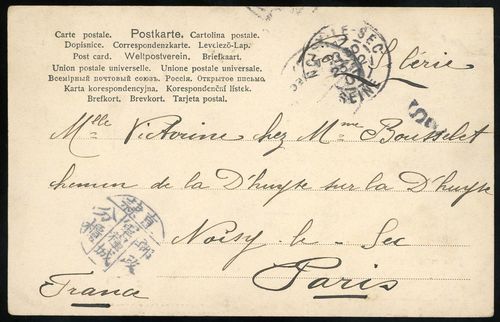 Carte postale. Postkarte. Cartolina postale.
Dopisnice. Correspondenzkarte. Levelező-Lap.
Post card. Weltpostverein. Briefkaart.
Union postale universelle. Unione postale universale.
Всемірный почтовый союзъ. Россія. Открытое письмо.
Karta korespondencyjna. Korespondenční lístek.
Brefkort. Brevkort. Tarjeta postal.
NOISY-LE-SEC
SEINE
Mlle Victorine chez Mme Bousselet
chemin de la D'huyte sur la D'huyte
Noisy le Sec
Paris
France